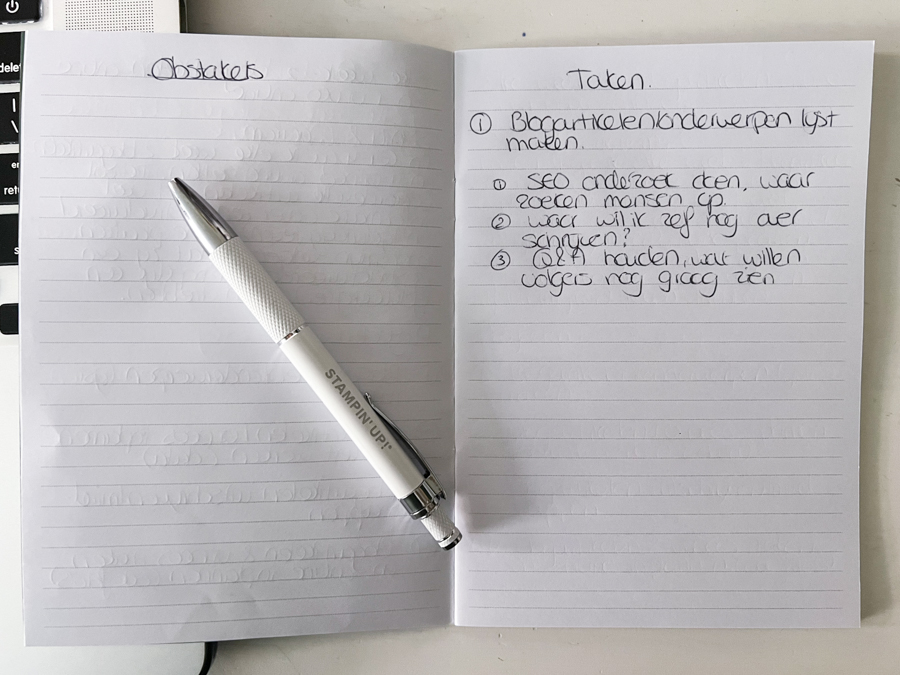 Obstakels
Taken.
① Blogartikelen/onderwerpen lijst
maken.
① SEO onderzoek doen, waar
zoeken mensen op
② waar wil ik zelf nog over
schrijven?
③ Q&A houden, wat willen
volgers nog graag zien
STAMPIN' UP!®
delete
return